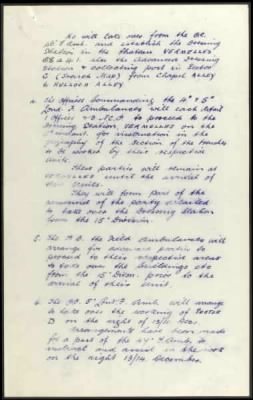 He will take over from the O.C.
46th F. Amb. and establish the Dressing
Station in the Chateau VERMELLES
G.8.a.4.1. also the Advanced Dressing
Station & collecting post in Sector
(Trench Map) from Chapel ALLEY
to HULLOCH ALLEY
4. The Officers Commanding the 4th & 5th
Lond. F. Ambulances will each detail
1 Officer & N.C.O. to proceed to the
Dressing Station, VERMELLES on the
instant for instruction in the
geography of the Section of the trenches
to be worked by their respective
Units.
These parties will remain at
VERMELLES until the arrival of
their Units.
They will form part of the
personnel of the party detailed
to take over the Dressing Station
from the 15th Division.
5. The O.C. the Field Ambulances will
arrange for advance parties to
proceed to their respective areas
to take over the buildings etc
from the 15th Divn. prior to the
arrival of their Unit.
6. The O.C. 5th Lond. F. Amb. will arrange
to take over the working of Sector
D on the night of 13/14 Dec.
Arrangements have been made
for a part of the 47th F. Amb. to
withdraw and assist in the work
on the night 13/14 December.